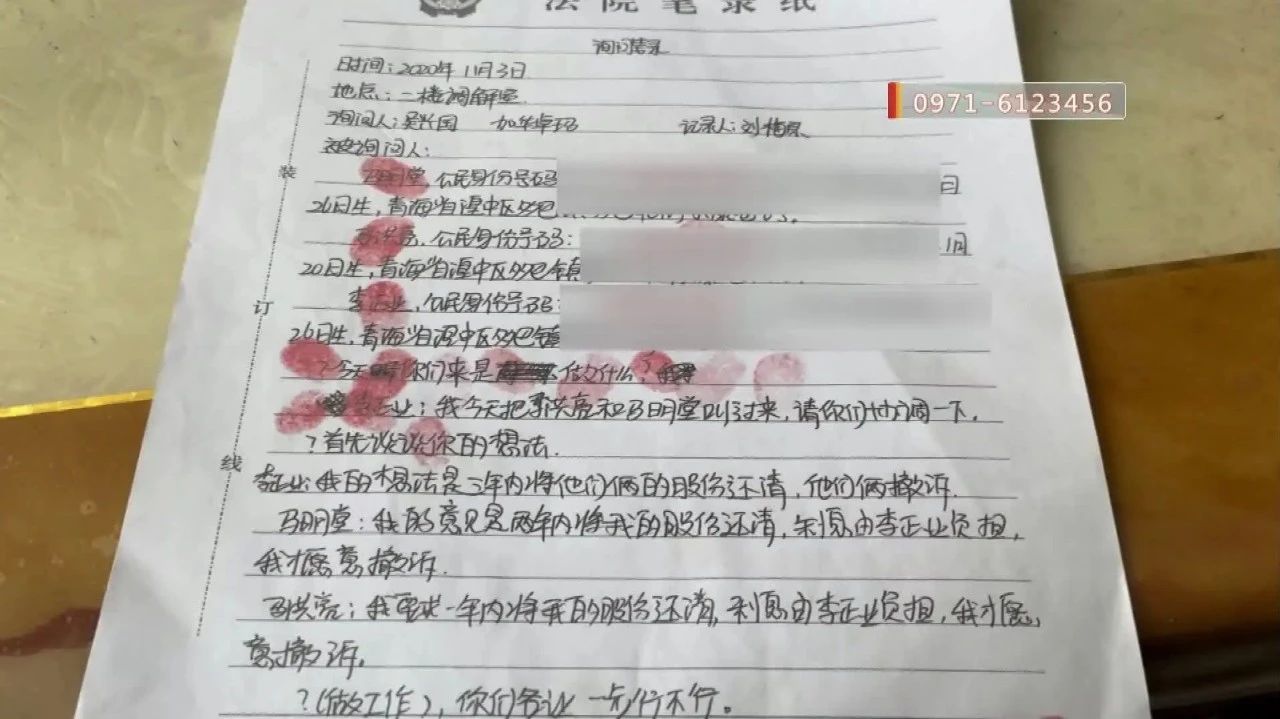 法院笔录纸
询问笔录
时间：2020年11月3日
0971-6123456
地点：二楼调解室
询问人：吴兴国 加华卓玛 记录人：刘
被询问人：
装
马明堂，公民身份号码 日
26日生，青海省湟中区多巴
马洪亮，公民身份号码： 1月
20日生，青海省湟中区多巴镇
订
李正业，公民身份号码：
26日生，青海省湟中区多巴镇
？今天你们来是做什么？
李正业：我今天把马洪亮和马明堂叫过来，请你们协调一下。
？首先谈谈你的想法。
线
李正业：我的想法是三年内将他们俩的股份还清，他们俩撤诉。
马明堂：我的意见是两年内将我的股份还清，利息由李正业负担，
我才愿意撤诉。
马洪亮：我要求一年内将我的股份还清，利息由李正业负担，我才愿
意撤诉。
？（做工作），你们各让一步行不行。